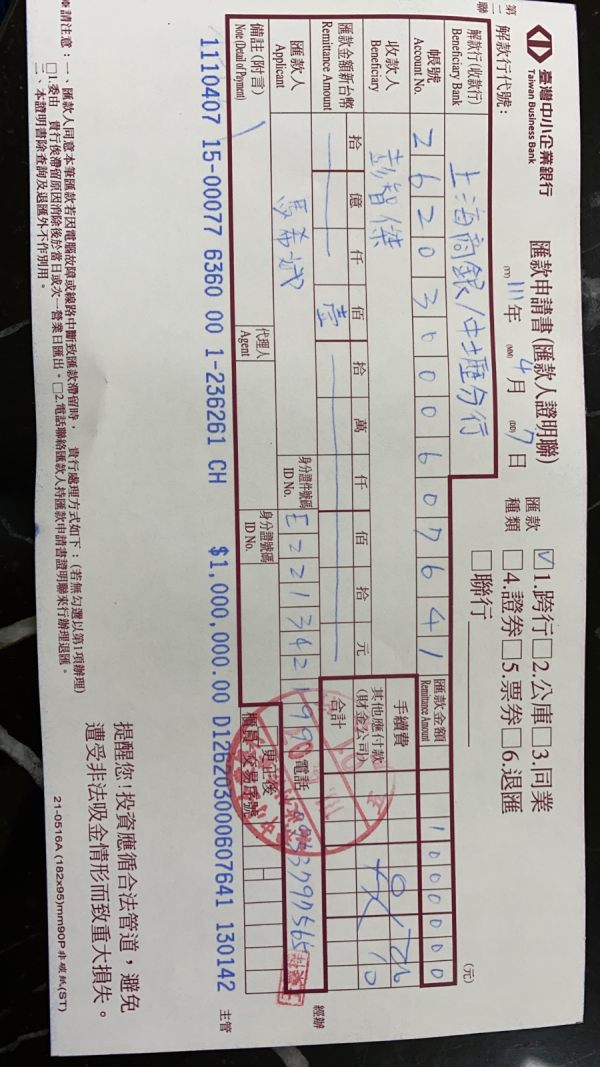 第二聯
臺灣中小企業銀行
Taiwan Business Bank
匯款申請書(匯款人證明聯)
解款行代號:
(YY) 111年 (MM) 4月 (DD) 7日
匯款種類
☑1.跨行□2.公庫□3.同業
□4.證券□5.票券□6.退匯
□聯行
解款行(收款行)
Beneficiary Bank
上海商銀/中壢分行
帳號
Account No.
26203000607641
匯款金額
Remittance Amount
1000000
(元)
收款人
Beneficiary
彭智傑
手續費
其他應付款
(財金公司)
10
合計
匯款金額新台幣
Remittance Amount
拾億仟佰拾萬仟佰拾元
壹
匯款人
Applicant
馬希斌
身分證件號碼
ID No.
E221342199
電話
備註(附言)
Note (Detail of Payment)
代理人
Agent
身分證號碼
ID No.
更正後
櫃員 交易序號
經辦
主管
1110407 15-00077 6360 00 1-236261 CH $1,000,000.00 D126203000607641 130142
※請注意:一、匯款人同意本筆匯款若因電腦故障或線路中斷致匯款滯留時,貴行處理方式如下:(若無勾選以第1項辦理)
□1.委由 貴行俟滯留原因消除後於當日或次一營業日匯出。□2.電話聯絡匯款人持匯款申請書證明聯來行辦理退匯。
二、本證明書除查詢及退匯外不作別用。
提醒您!投資應循合法管道,避免
遭受非法吸金情形而致重大損失。
21-0516A (182x95)mm90P非碳紙(ST)